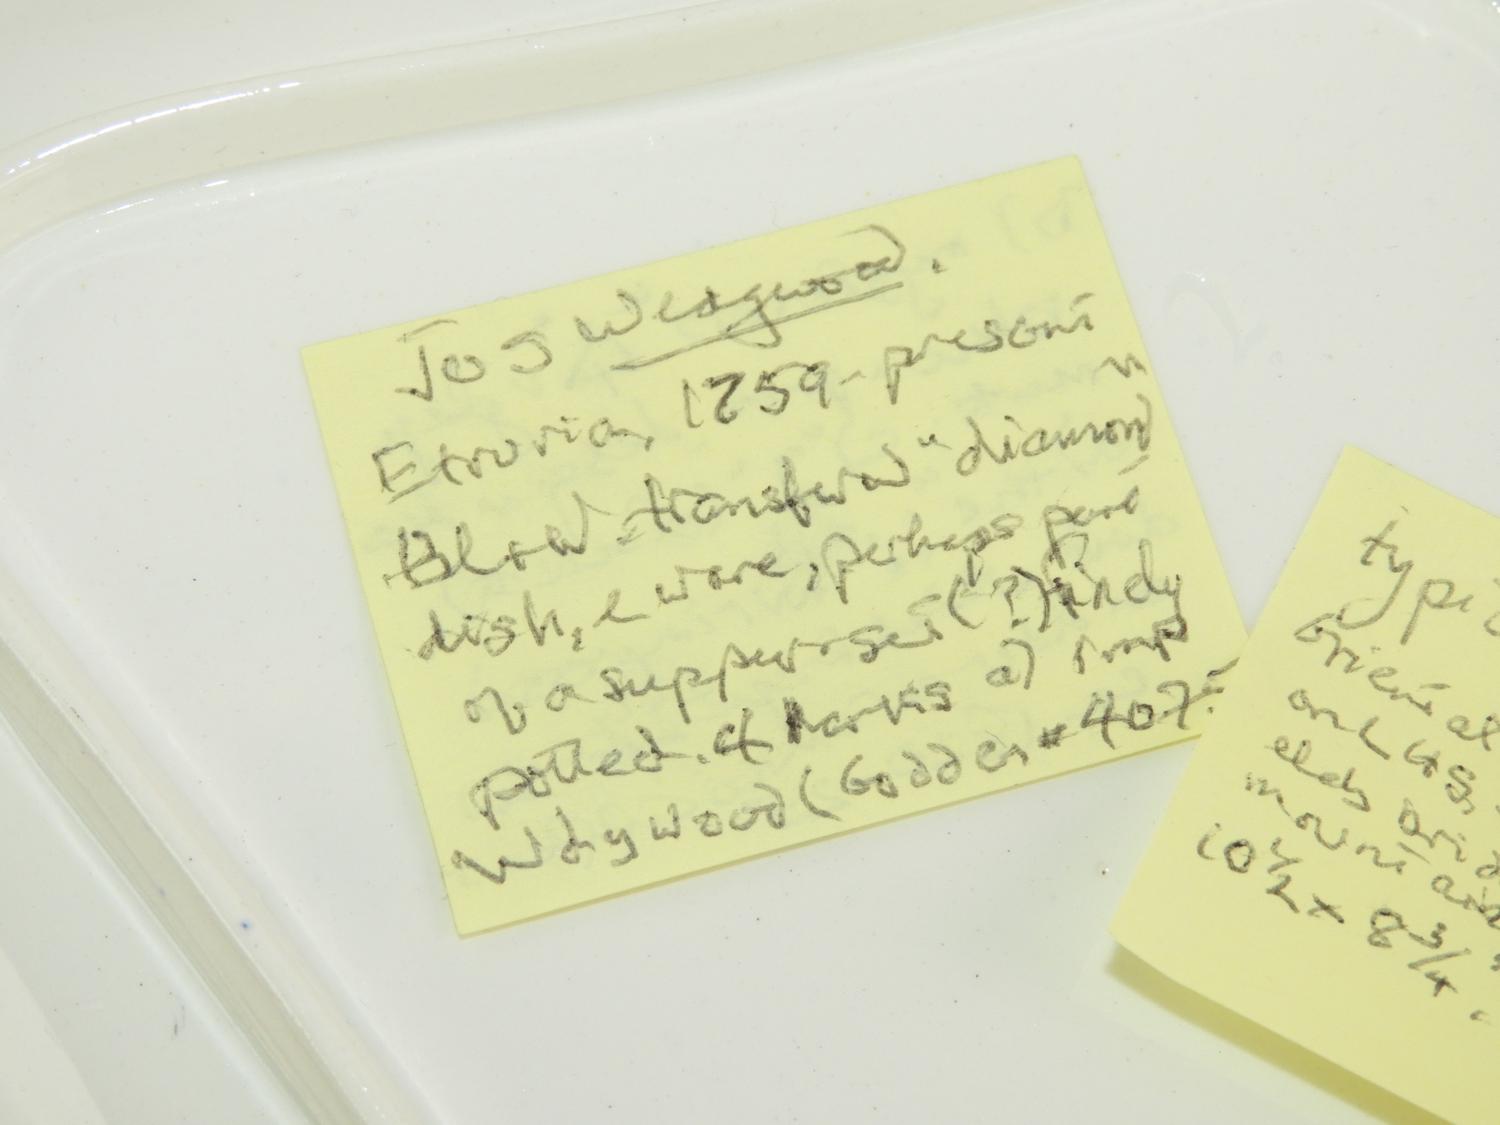 Jos Wedgwood.
Etruria, 1759 - present
Blue transfer "diamond"
dish, e ware, perhaps part
of a supper-set (?) finely
potted. Marks a) imp
Wedgwood (Godden #407
typi
Oriental
and
10 1/2 x 8 3/4.